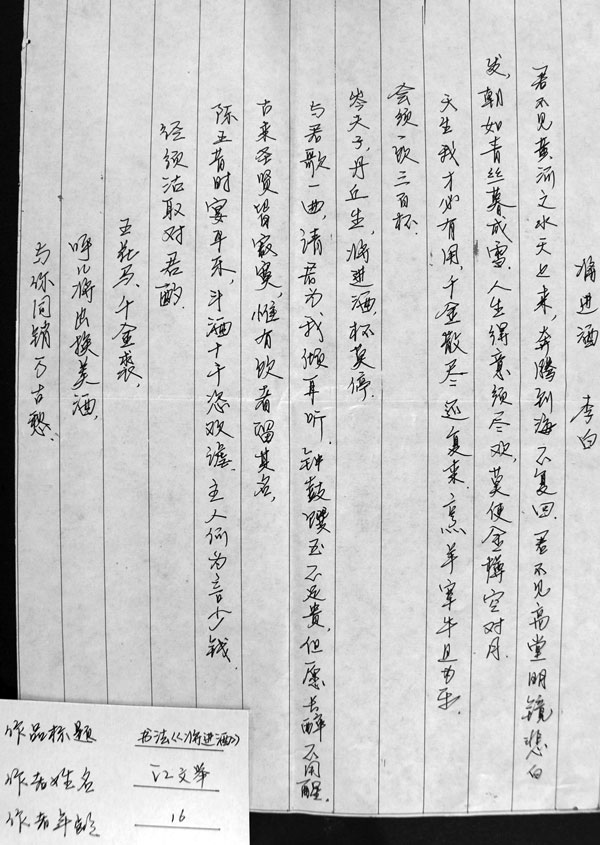 将进酒 李白
君不见黄河之水天上来,奔腾到海不复回.君不见高堂明镜悲白
发,朝如青丝暮成雪.人生得意须尽欢,莫使金樽空对月.
天生我才必有用,千金散尽还复来.烹羊宰牛且为乐.
会须一饮三百杯.
岑夫子,丹丘生,将进酒,杯莫停.
与君歌一曲,请君为我倾耳听.钟鼓馔玉不足贵,但愿长醉不用醒.
古来圣贤皆寂寞,惟有饮者留其名,
陈王昔时宴平乐,斗酒十千恣欢谑.主人何为言少钱.
径须沽取对君酌.
五花马、千金裘,
呼儿将出换美酒,
与尔同销万古愁.
作品标题 书法《将进酒》
作者姓名 江文举
作者年龄 16